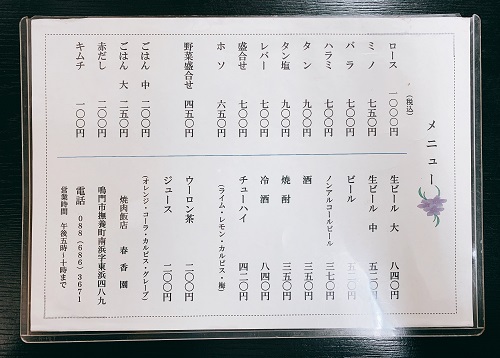 メニュー
(税込)
ロース 一〇〇〇円
ミノ 七五〇円
バラ 七〇〇円
ハラミ 七〇〇円
タン 九〇〇円
タン塩 九〇〇円
レバー 七〇〇円
盛合せ 七〇〇円
ホソ 六五〇円
野菜盛合せ 四五〇円
ごはん 中 二〇〇円
ごはん 大 二五〇円
赤だし 二〇〇円
キムチ 一〇〇円
生ビール 大 八四〇円
生ビール 中 五二〇円
ビール 五二〇円
ノンアルコールビール 三七〇円
酒 三五〇円
焼酎 三五〇円
冷酒 八四〇円
チューハイ 四二〇円
(ライム・レモン・カルピス・梅)
ウーロン茶 二〇〇円
ジュース 二〇〇円
(オレンジ・コーラ・カルピス・グレープ)
焼肉飯店 春香園
鳴門市撫養町南浜字東浜四八九
電話 088(686)3671
営業時間 午後五時~十時まで